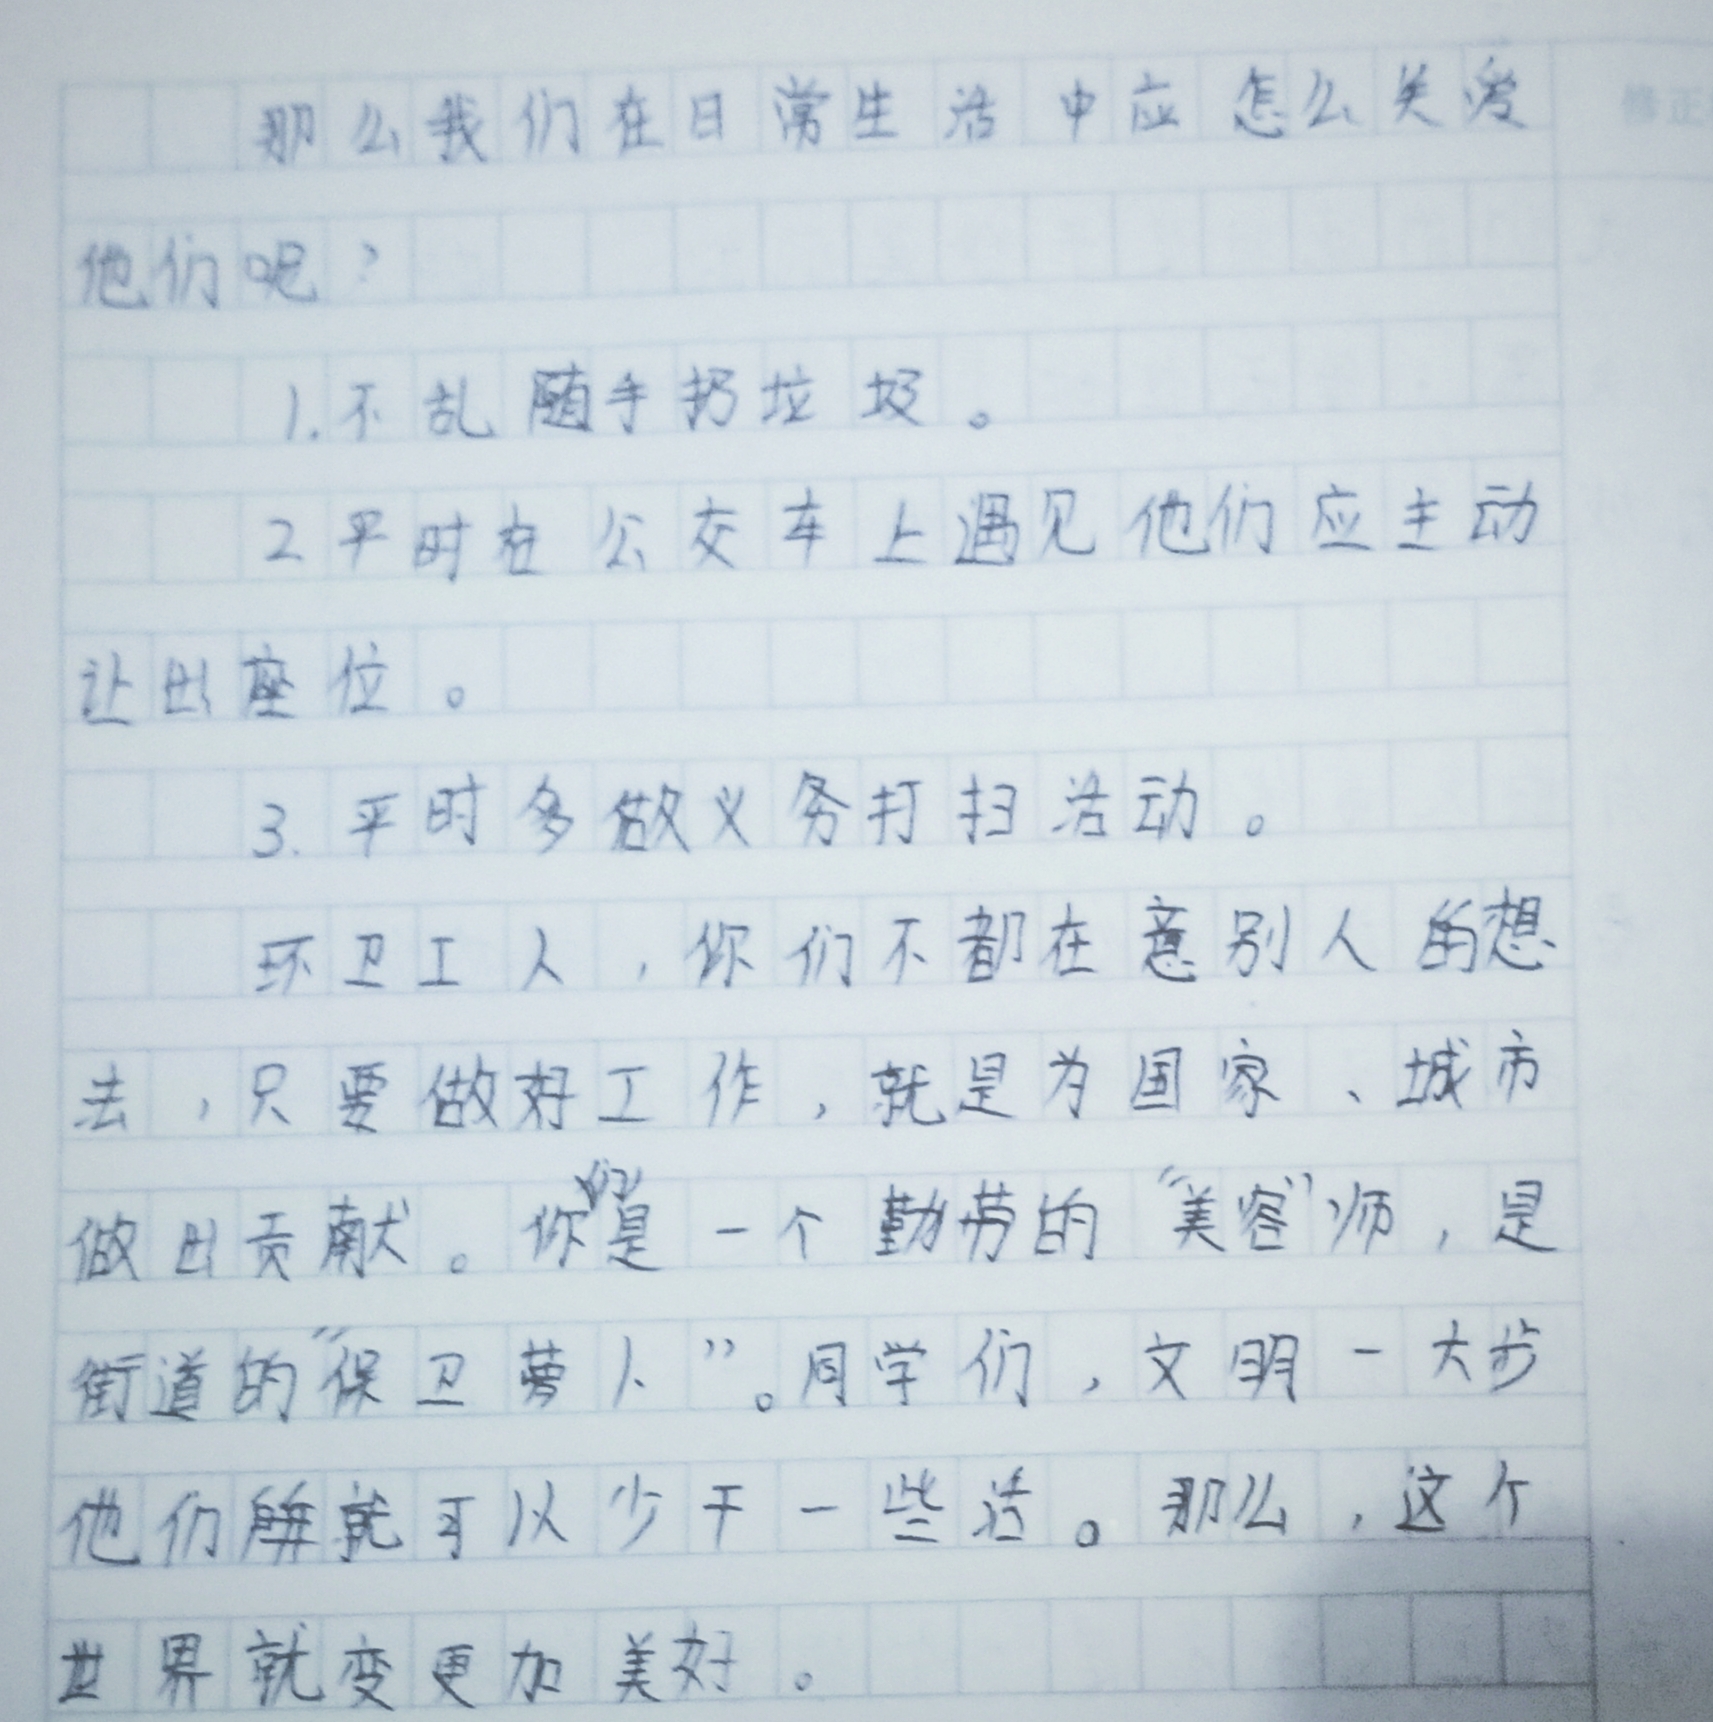 那么我们在日常生活中应怎么关爱
他们呢?
1.不乱随手扔垃圾。
2平时在公交车上遇见他们应主动
让出座位。
3.平时多做义务打扫活动。
环卫工人,你们不都在意别人的想
法,只要做好工作,就是为国家、城市
做出贡献。你们是一个勤劳的“美容”师,是
街道的“保卫萝卜”。同学们,文明一大步
他们就可以少干一些活。那么,这个
世界就变更加美好。